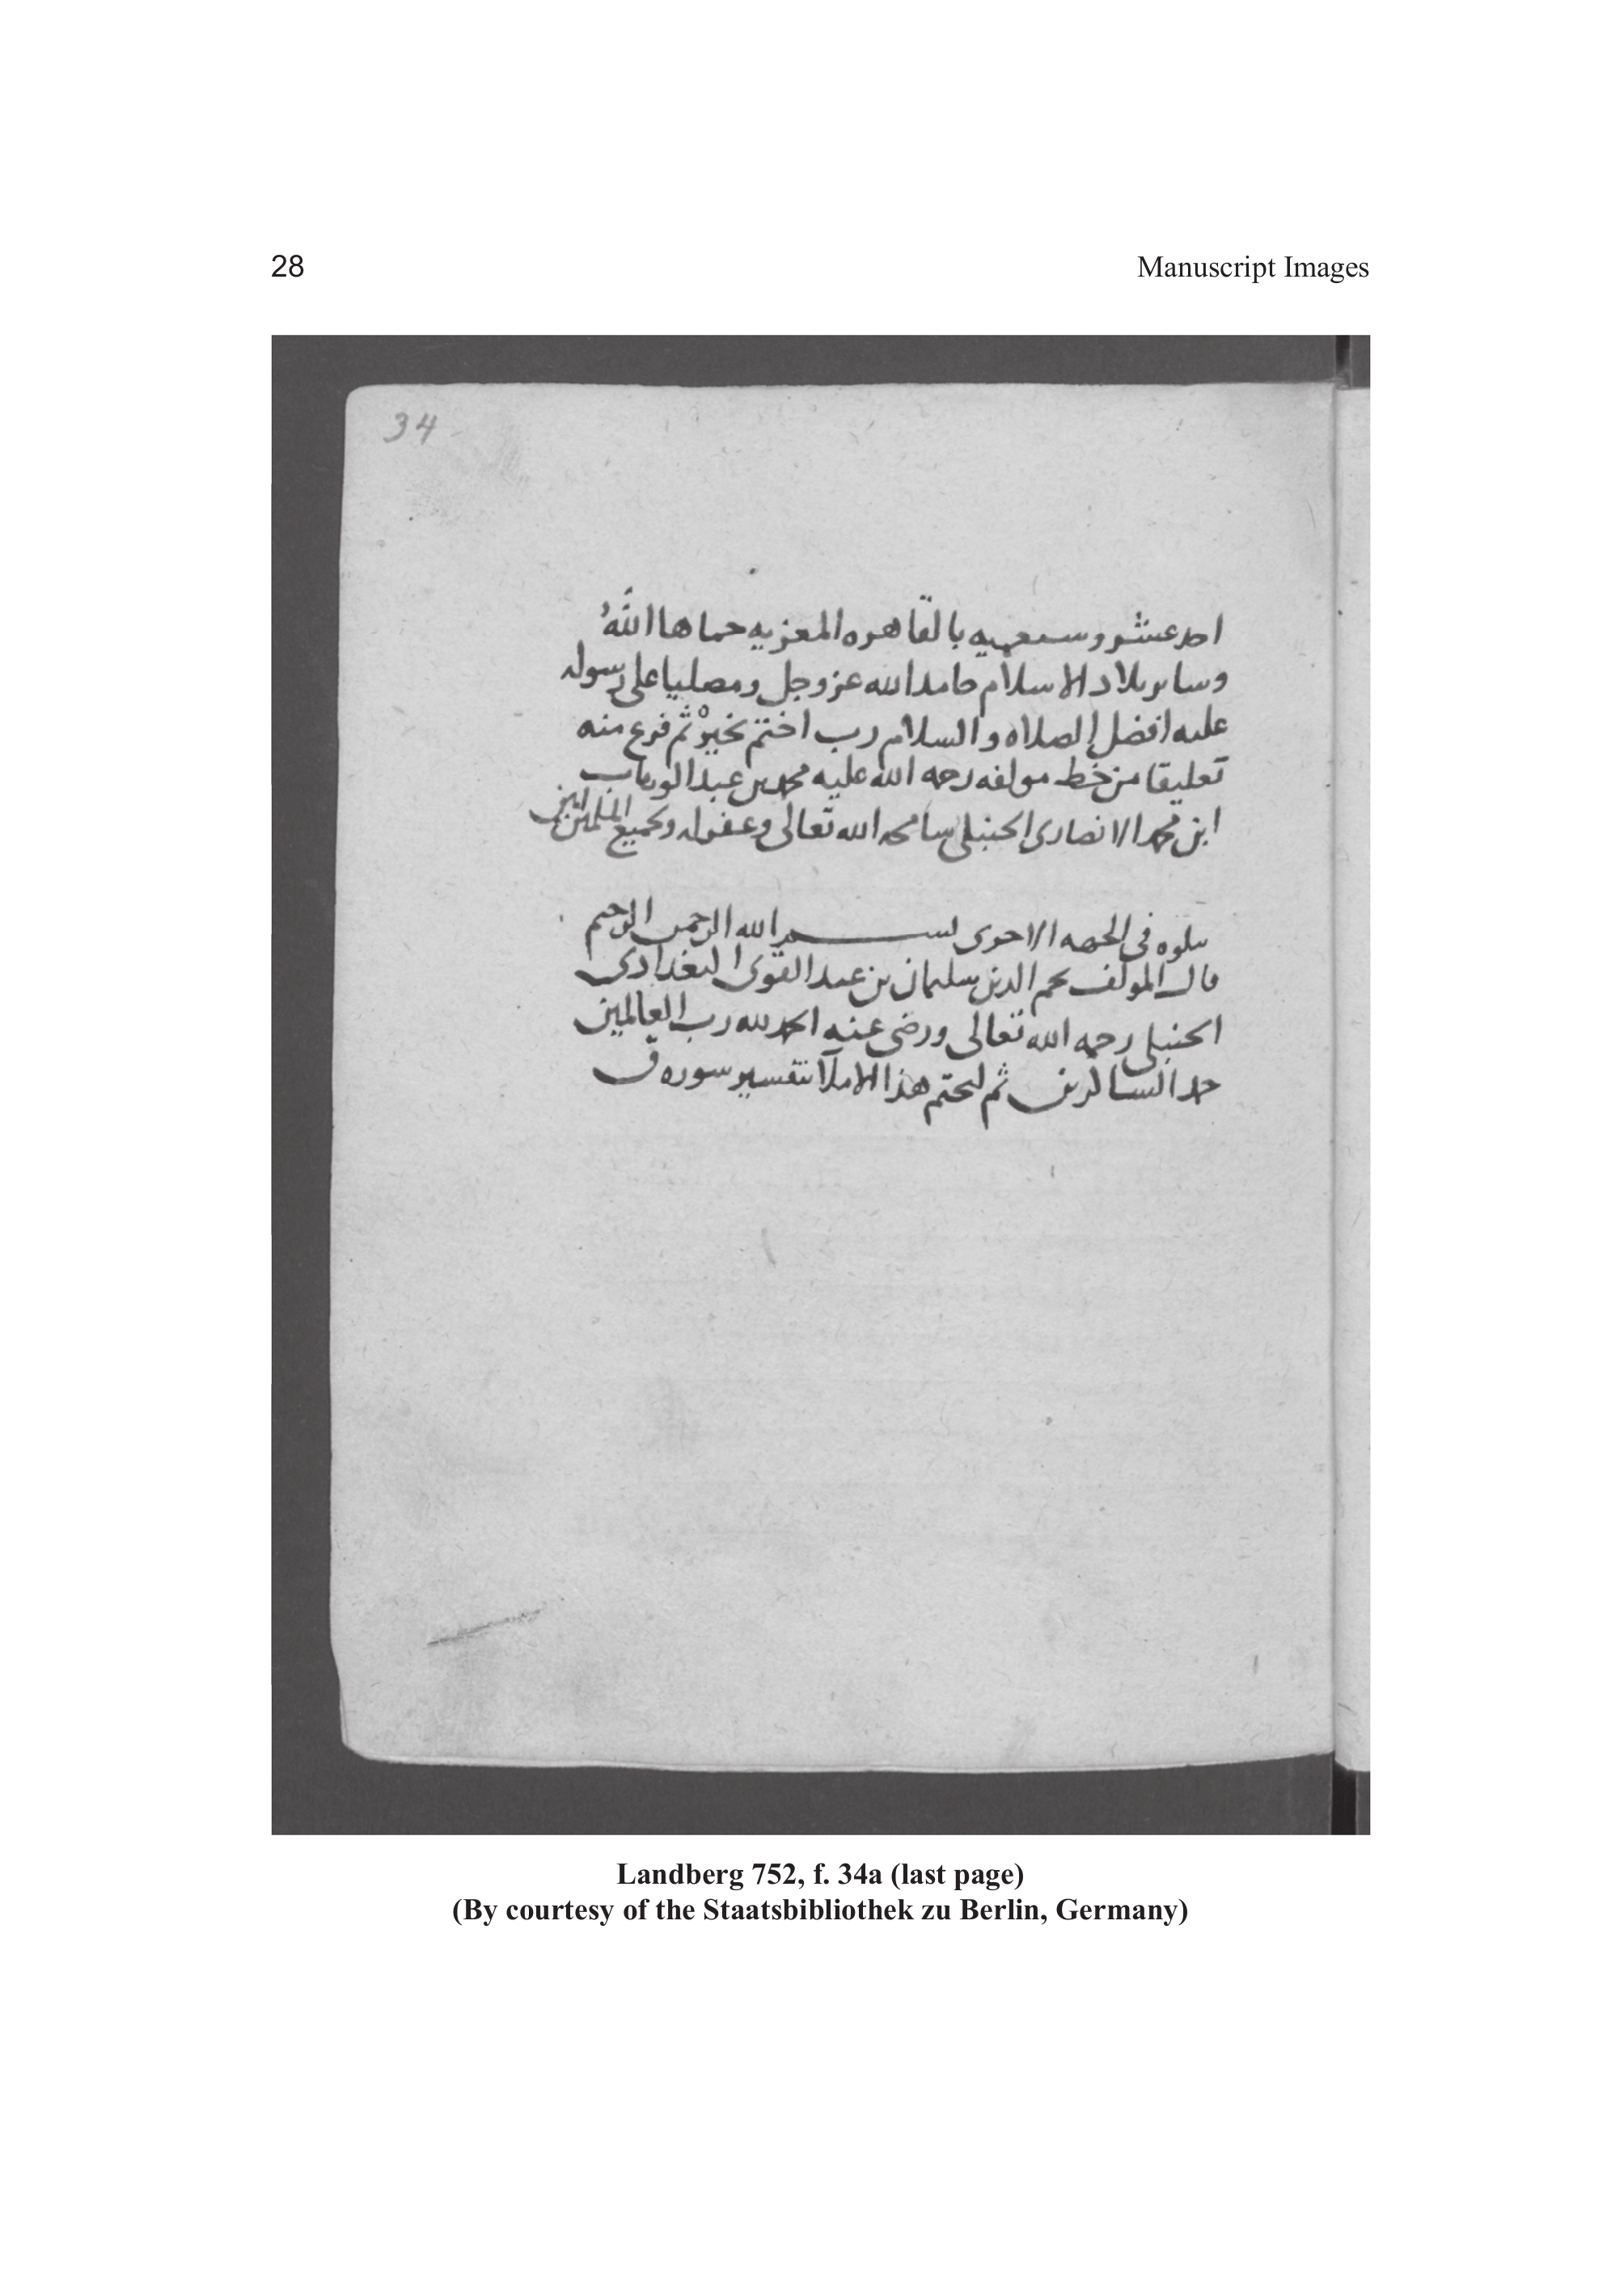 28 Manuscript Images
34
احد عشر وسبعميه بالقاهره المعزيه حماها اللهُ
وساير بلاد الاسلام حامدا لله عز وجل ومصليا على رسوله
عليه افضل الصلاه والسلام رب اختم بخير ثم فرغ منه
تعليقا من خط مولفه رحمه الله عليه محمد بن عبد الوهاب
ابن محمد الانصارى الحنبلى سامحه الله تعالى وعفى له ولجميع المسلمين امين
يتلوه فى الجهه الاخرى بسم الله الرحمن الرحيم
قال المولف نجم الدين سليمان بن عبد القوى البغدادى
الحنبلى رحمه الله تعالى ورضى عنه الحمد لله رب العالمين
حمد الشاكرين ثم لنختم هذا الاملآ بتفسير سوره ق
Landberg 752, f. 34a (last page)
(By courtesy of the Staatsbibliothek zu Berlin, Germany)